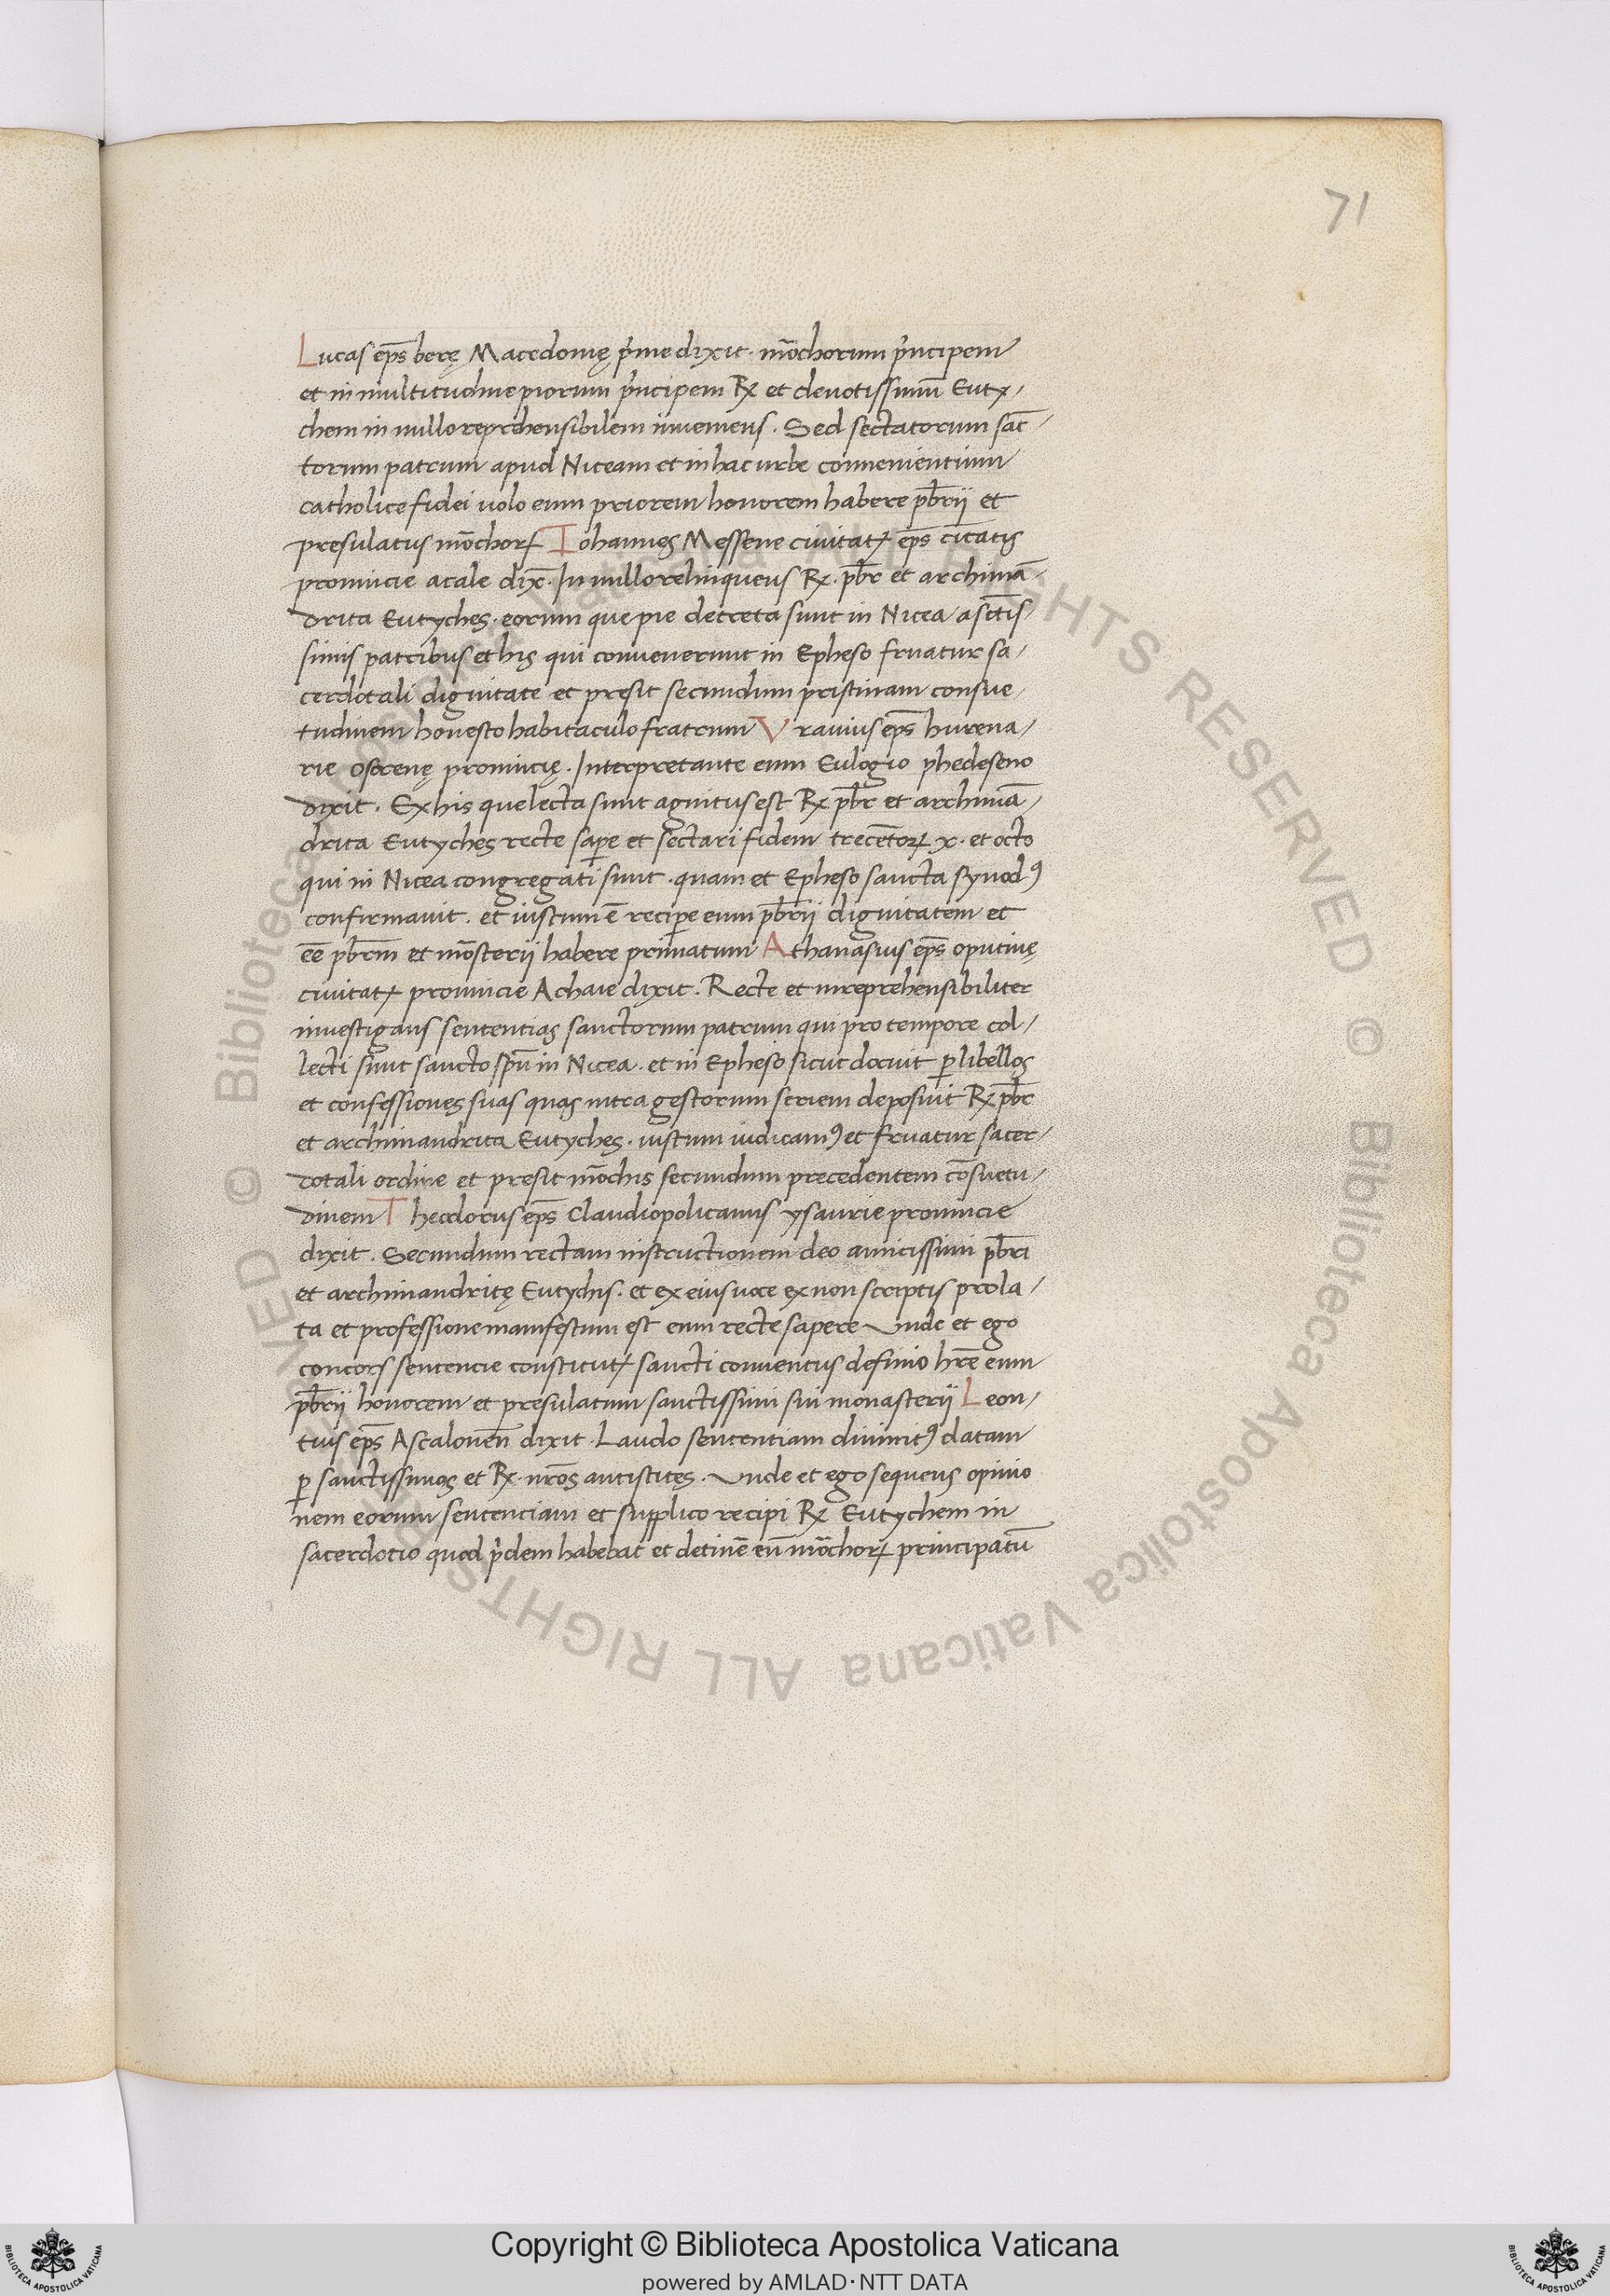 71
Lucas ep̄s berę Macedonię p̓me dixit · mōchorum p̓ncipem
et in multitudine piorum p̓ncipem Rx et deuotissimū Euty/
chem in nullo reprehensibilem inueniens . Sed sectatorum sāc/
torum patrum apud Niceam et in hac urbe conuenientium
catholice fidei uolo eum priorem honorem habere pb̄rii et
presulatus mōchorꝝ Iohannes Messene ciuitatꝭ ep̄s ciītatis
prouincie acaie dix̄ . In nullo relinquens Rx . pb̄r et archimā/
drita Eutyches . eorum que pie decreta sunt in Nicea a sc̄tis/
simis patribus et his qui conuenerunt in Epheso fruatur sa/
cerdotali dignitate et presit secundum pristinam consue/
tudinem honesto habitaculo fratrum Vranius ep̄s himena/
rie osrenę prouincię . Interpretante eum Eulogio phedeseno
dixit . Ex his que lecta sunt agnitus est Rx pb̄r et archimā/
drita Eutyches recte saꝑe et sectari fidem trecētorꝝ x . et octo
qui in Nicea congregati sunt . quam et Epheso sancta synodꝰ
confirmauit . et iustum ē reciꝑe eum pb̄rii dignitatem et
eē pb̄rm et mōsterii habere primatum Athanasius ep̄s oputinę
ciuitatꝭ prouincie Achaie dixit . Recte et inreprehensibiliter
inuestigans sententias sanctorum patrum qui pro tempore col/
lecti sunt sancto sp̄u in Nicea . et in Epheso sicut docuit ꝑ libellos
et confessiones suas quas intra gestorum seriem deposuit Rx pb̄r
et archimandrita Eutyches . iustum iudicamꝰ et fruatur sacer/
dotali ordine et presit mōchis secundum precedentem cōsuetu/
dinem Theodorus ep̄s Claudiopolitanus ysaurie prouincie
dixit . Secundum rectam instructionem deo amicissimi pb̄ri
et archimandritę Eutychis . et ex eius uoce ex non scriptis prola/
ta et professione manifestum est eum recte sapere Unde et ego
concors sentencie constitutꝭ sancti conuentus definio hr̄e eum
pb̄rii honorem et presulatum sanctissimi sui monasterii Leon/
tius ep̄s Ascalonen̄ dixit . Laudo sententiam diuinitꝰ datam
ꝑ sanctissimos et Rx . nr̄os antistites . Unde et ego sequens opinio
nem eorum sentenciam et supplico recipi Rx Eutychem in
sacerdotio quod p̓dem habebat et detinē eū mōchorꝝ principatū
© Biblioteca Apostolica Vaticana ALL RIGHTS RESERVED © Biblioteca Apostolica Vaticana ALL RIGHTS RESERVED
Copyright © Biblioteca Apostolica Vaticana
powered by AMLAD·NTT DATA
BIBLIOTECA APOSTOLICA VATICANA
BIBLIOTECA APOSTOLICA VATICANA